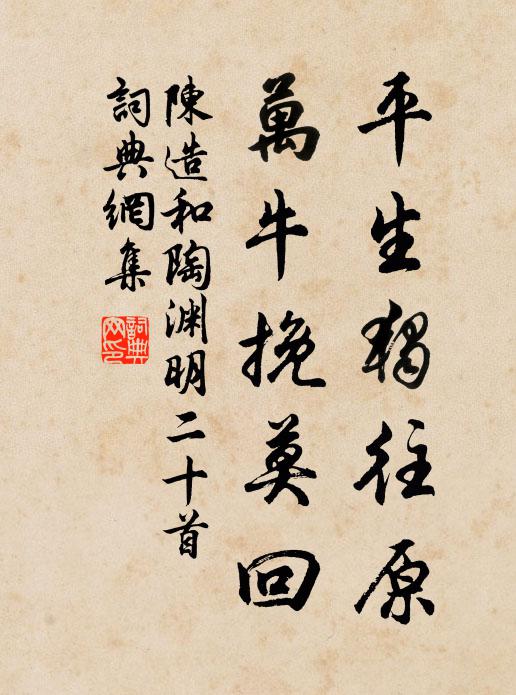 平生獨往原
萬牛挽莫回
陳造和陶淵明二十首
詞典網集
詞典網印